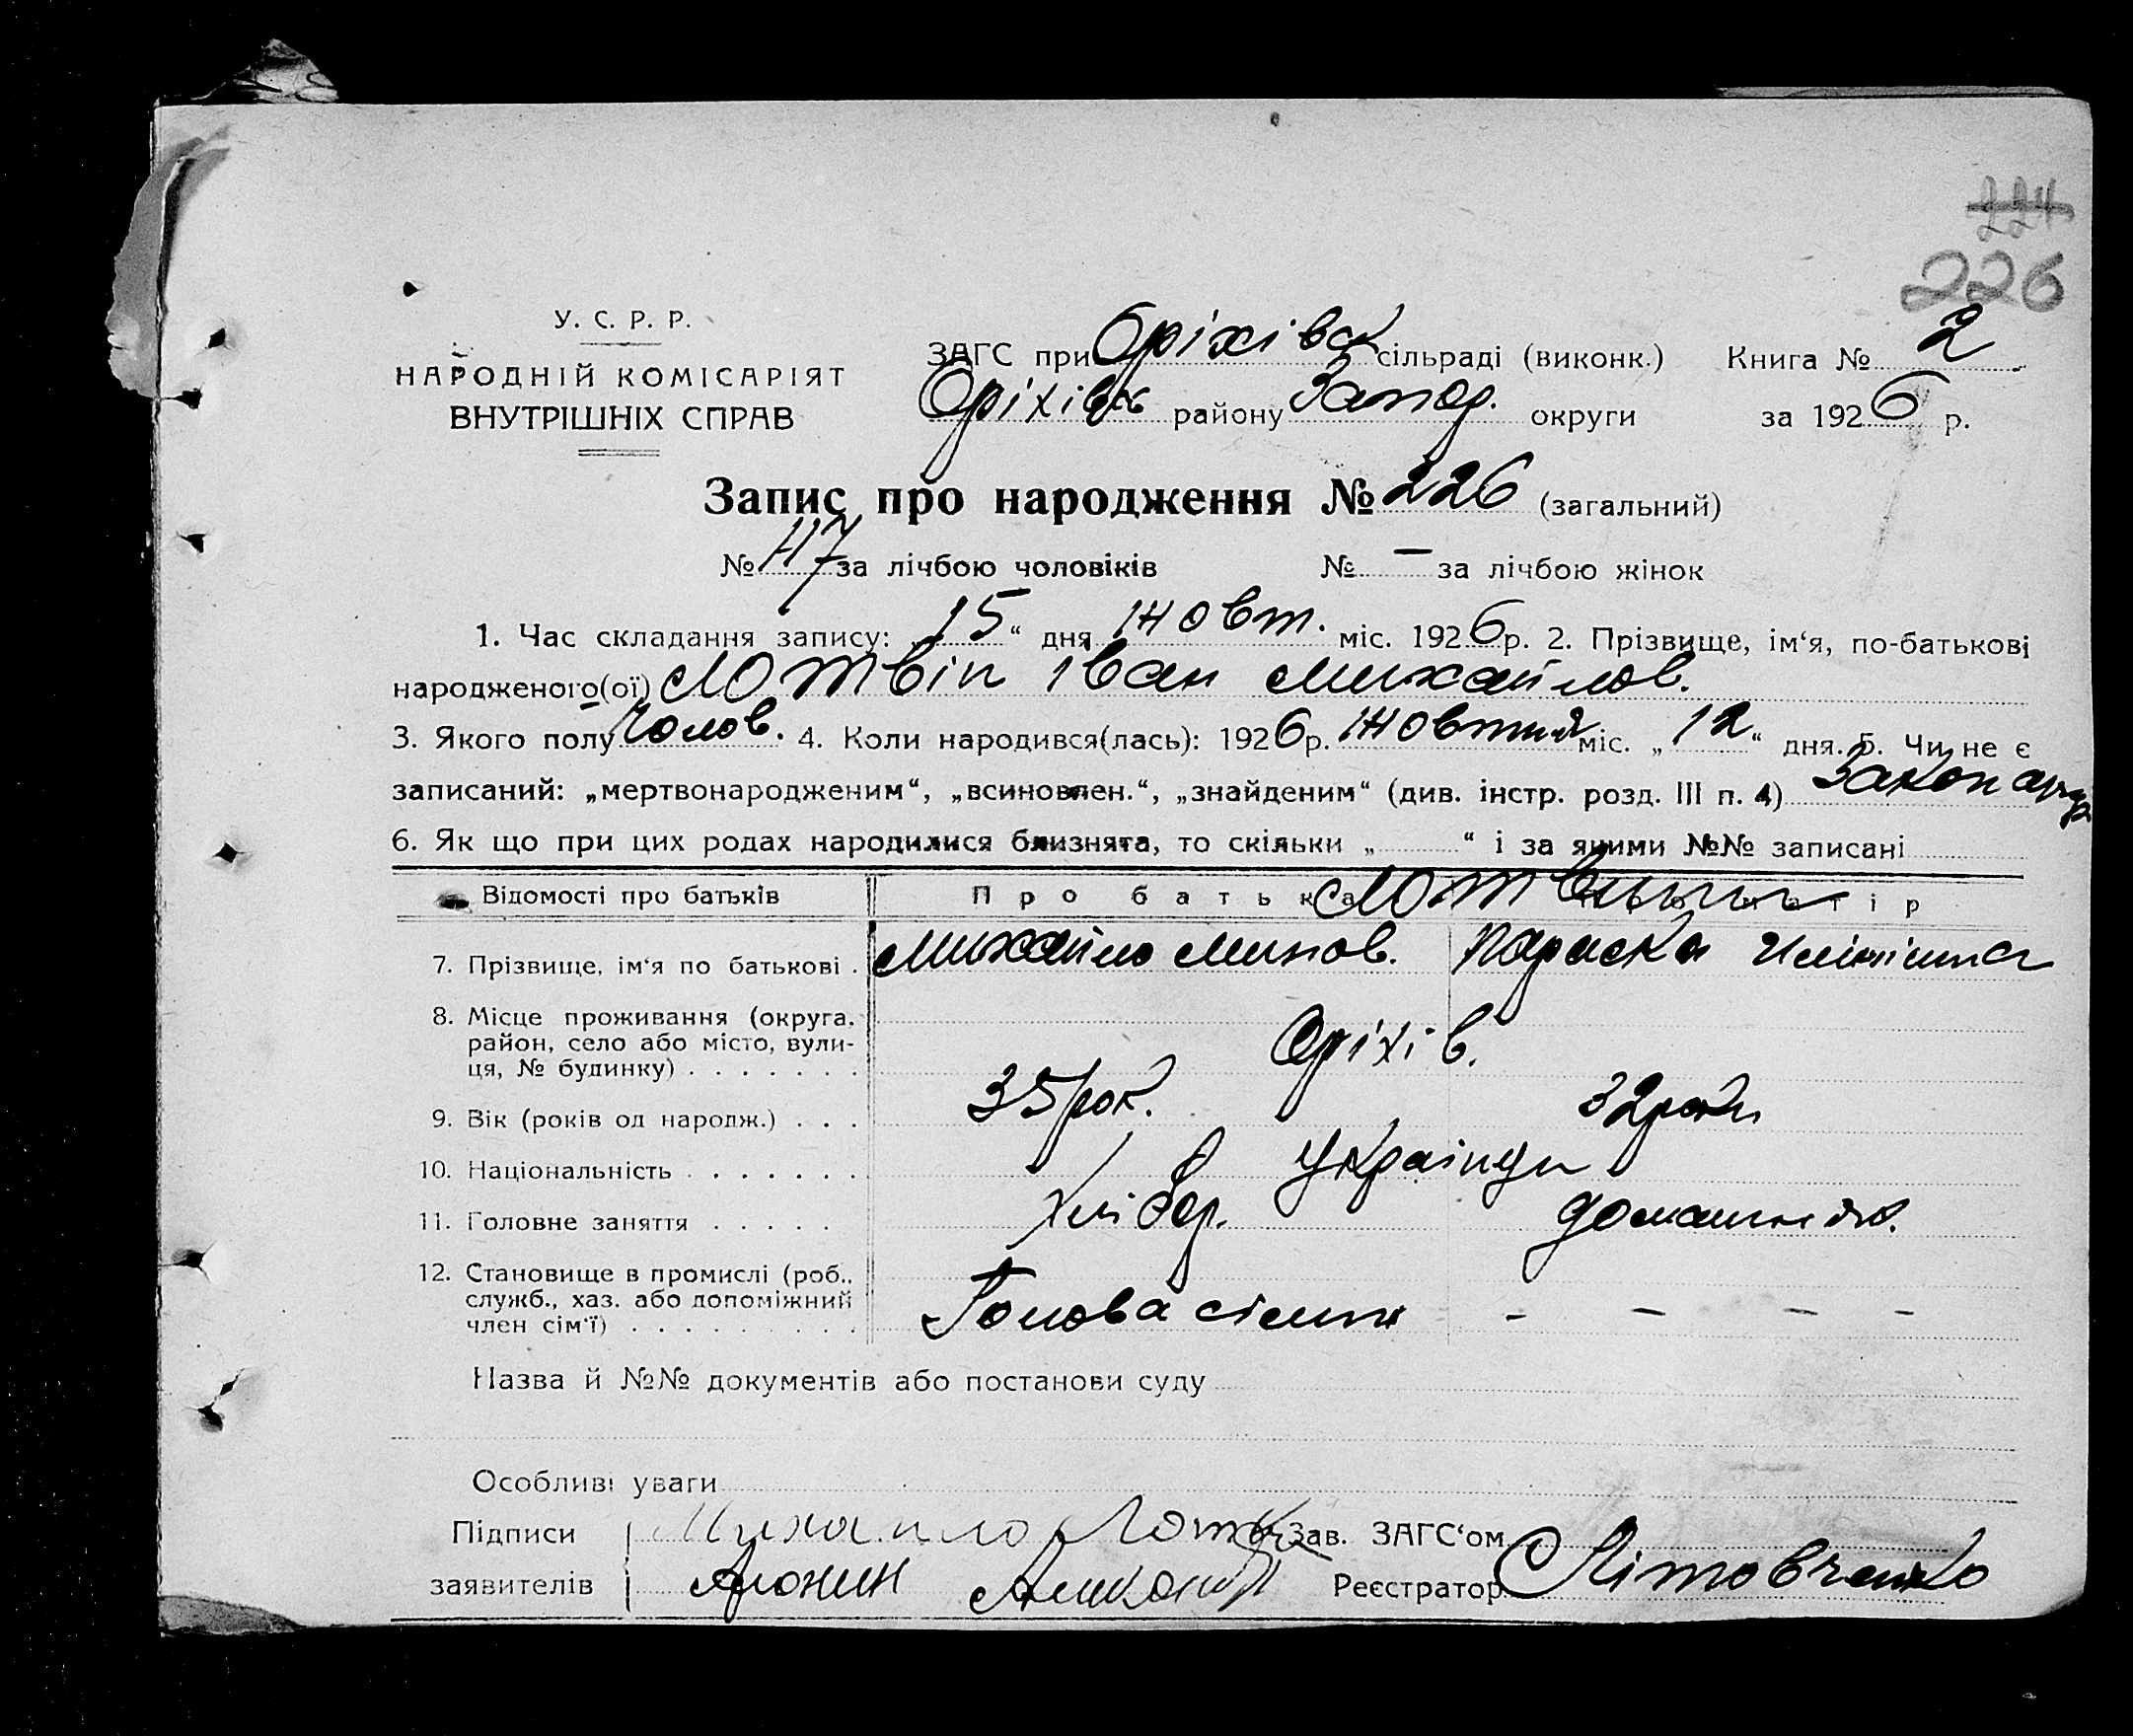 224
226
У. С. Р. Р.
НАРОДНІЙ КОМІСАРІЯТ
ВНУТРІШНІХ СПРАВ
ЗАГС при Оріхівск сільраді (виконк.) Книга № 2
Оріхівськ району Запор. округи за 1926 р.
Запис про народження № 226 (загальний)
№ 117 за лічбою чоловіків № — за лічбою жінок
1. Час складання запису: 15 “ дня жовт. міс. 1926 р. 2. Прізвище, ім‘я, по-батькові
народженого(ої) Лотвін Іван Михайлов.
3. Якого полу Чолов. 4. Коли народився(лась): 1926 р. жовтня міс. „ 12 “ дня. 5. Чи не є
записаний: „мертвонародженим“, „всиновлен.“, „знайденим“ (див. інстр. розд. III п. 4)
6. Як що при цих родах народилися близнята, то скільки „ “ і за якими №№ записані
Відомості про батьків Про батька Лотвини
7. Прізвище, ім‘я по батькові . Михайло Параска
8. Місце проживання (округа, район, село або місто, вулиця, № будинку) . . . . . . . Оріхів.
9. Вік (років од народж.) . . . 35 рок. 32 роки
10. Національність . . . . . . . Українци
11. Головне заняття . . . . . Хлібор.
12. Становище в промислі (роб., служб., хаз. або допоміжний член сім‘ї) . . . . . . . . . Голова сімьи — — — —
Назва й №№ документів або постанови суду
Особливі уваги
Підписи Михайло Зав. ЗАГС‘ом
заявителів Реєстратор Літовченко